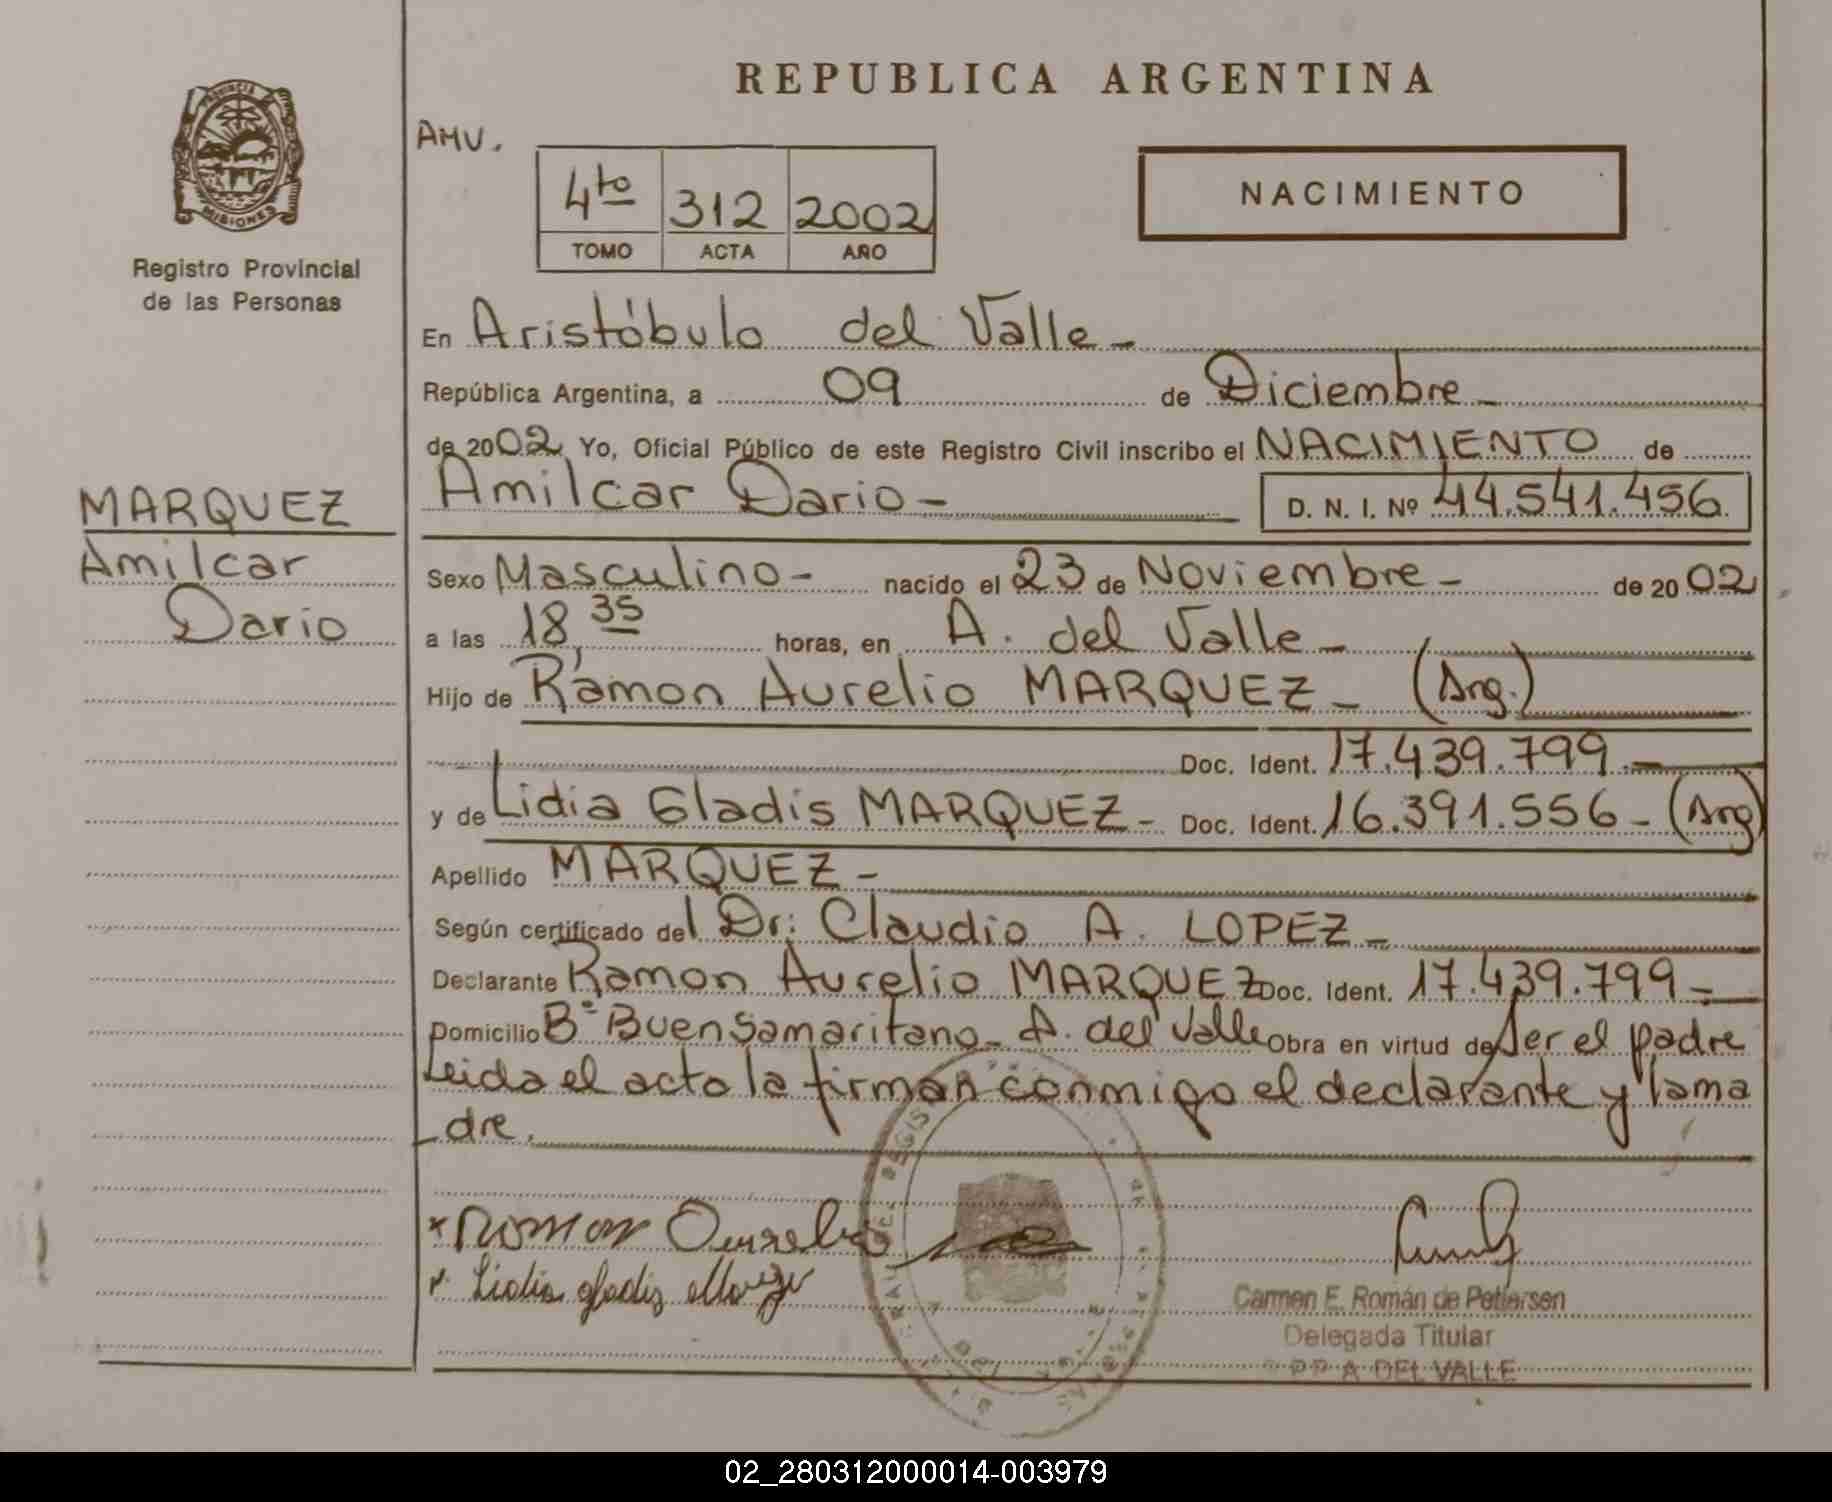 REPUBLICA ARGENTINA
PROVINCIA DE
MISIONES
Registro Provincial
de las Personas
AMV.
4to 312 2002
TOMO ACTA AÑO
NACIMIENTO
En Aristóbulo del Valle -
República Argentina, a 09 de Diciembre -
de 2002 Yo, Oficial Público de este Registro Civil inscribo el NACIMIENTO de
Amilcar Dario - D. N. I. Nº 44.541.456
MARQUEZ
Amilcar
Dario
Sexo Masculino - nacido el 23 de Noviembre - de 2002
a las 18,35 horas, en A. del Valle -
Hijo de Ramon Aurelio MARQUEZ - (Arg.)
Doc. Ident. 17.439.799.-
y de Lidia Gladis MARQUEZ - Doc. Ident. 16.391.556 - (Arg)
Apellido MARQUEZ -
Según certificado del Dr: Claudio A. LOPEZ -
Declarante Ramon Aurelio MARQUEZ Doc. Ident. 17.439.799 -
Domicilio Bº Buen Samaritano - A. del Valle Obra en virtud de Ser el padre
Leida el acta la firman conmigo el declarante y la ma
- dre.
Lidia gladis
Carmen E. Román de Petersen
Delegada Titular
A DEL VALLE
02_280312000014-003979